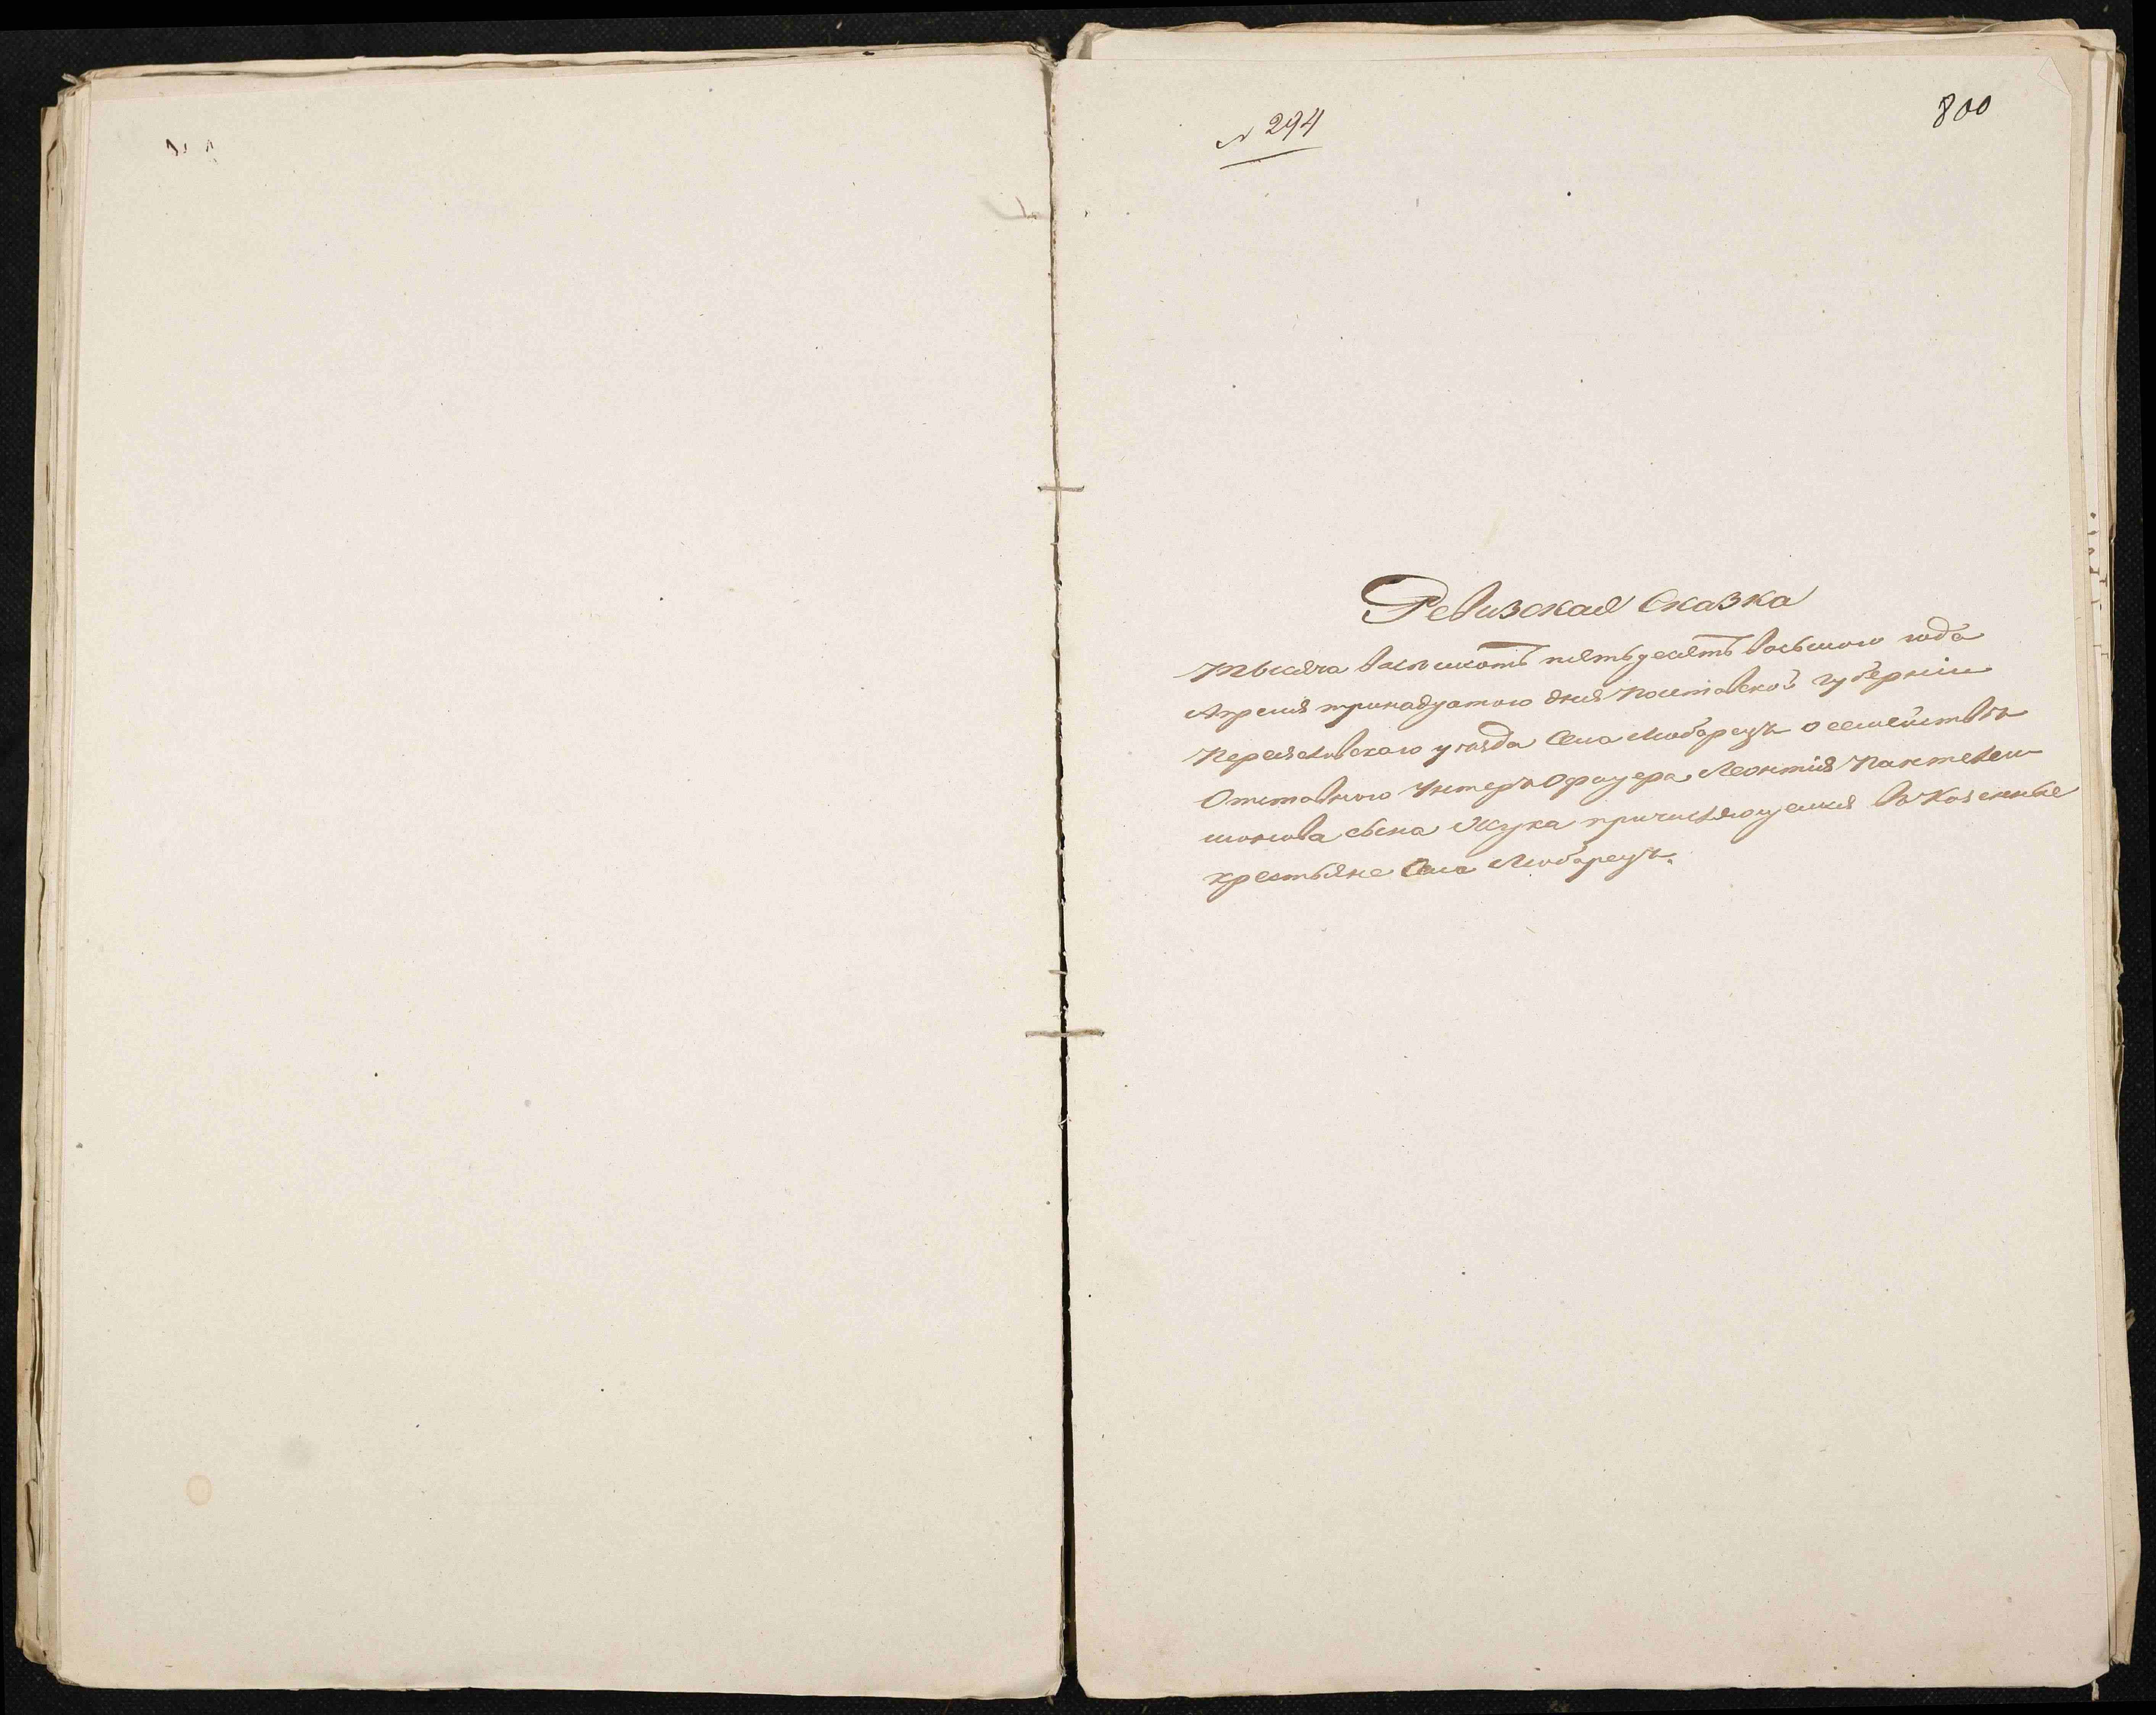 № 294
800
Ревизская Сказка
Тысяча восемьсотъ пятьдесятъ восьмого года
Апреля тринадцатого дня Полтавской губерніи
Переяславского уѣзда Села Любарецъ о семействѣ
Отставного Унтеръ Офицера Леонтія Пантелеи
монова сына Жука причисляющемся въ Казенные
крестьяне Села Любарецъ.